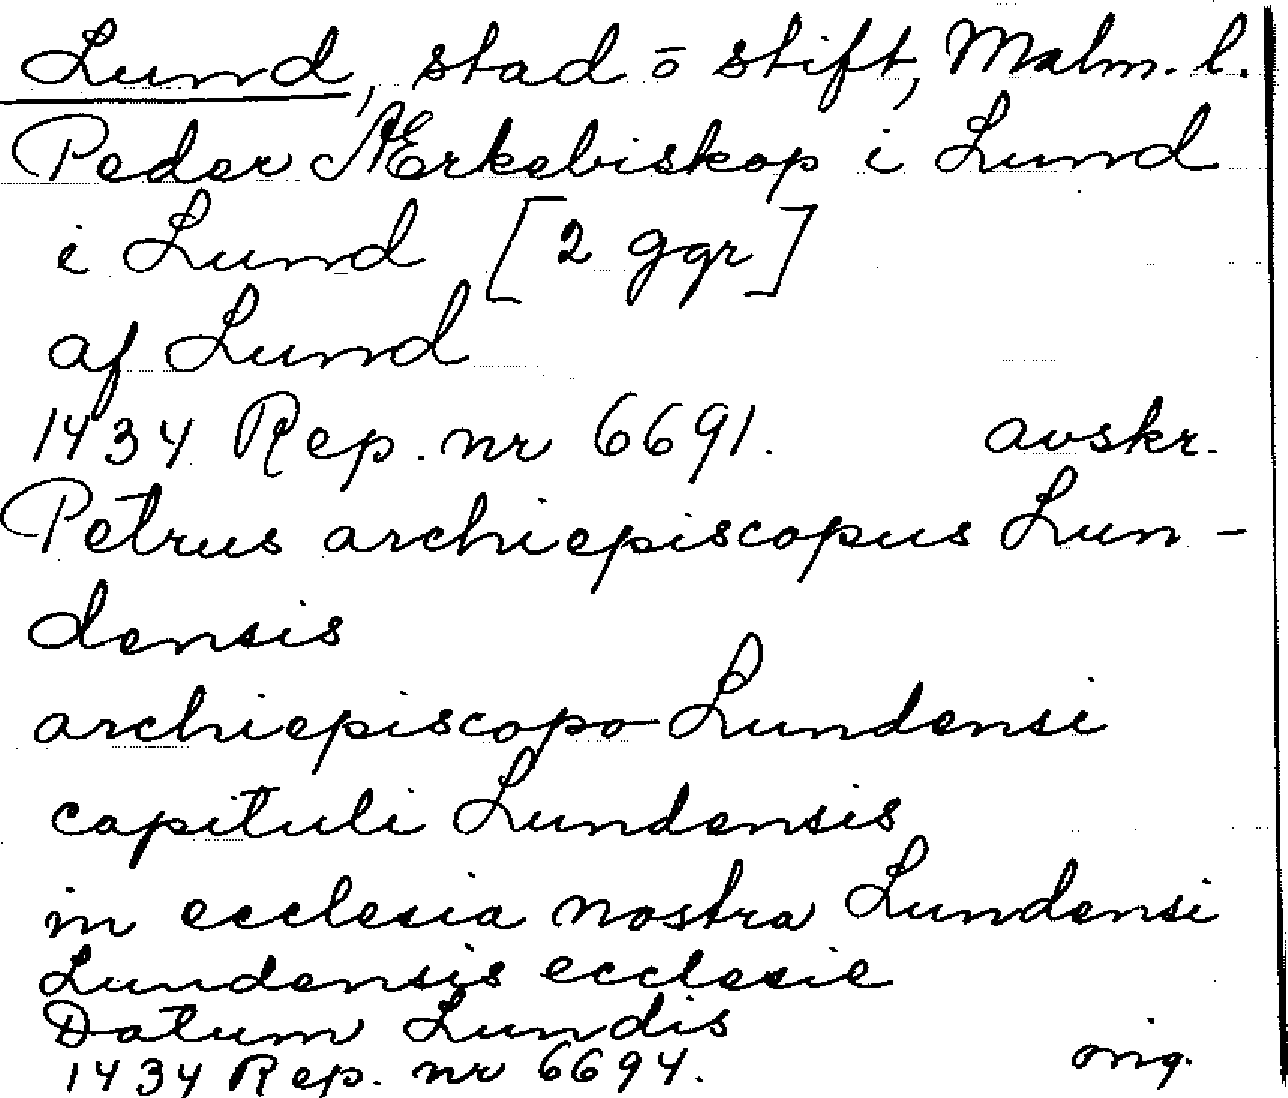 Lund, stad o stift, Malm. l.
Peder Ærkebiskop i Lund
i Lund [2 ggr]
af Lund
1434 Rep. nr 6691. avskr.
Petrus archiepiscopus Lun-
densis
archiepiscopo Lundensi
capituli Lundensis
in ecclesia nostra Lundensi
Lundensis ecclesie
Datum Lundis
1434 Rep. nr 6694. orig.